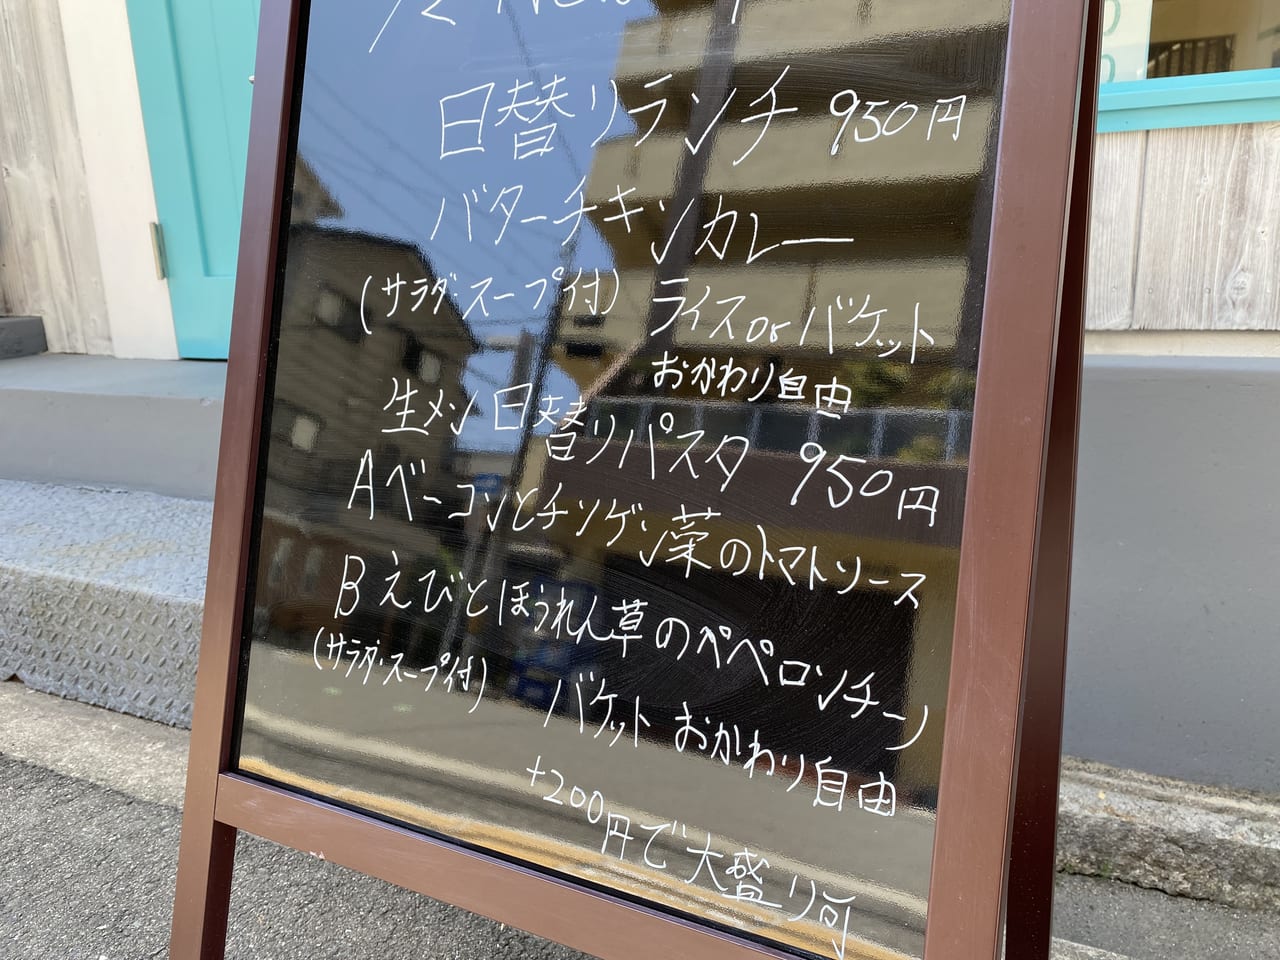 日替りランチ 950円
バターチキンカレー
(サラダ・スープ付) ライスorバケット
おかわり自由
生メン日替りパスタ 950円
Aベーコンとチンゲン菜のトマトソース
Bえびとほうれん草のペペロンチーノ
(サラダ・スープ付) バケットおかわり自由
+200円で大盛り可